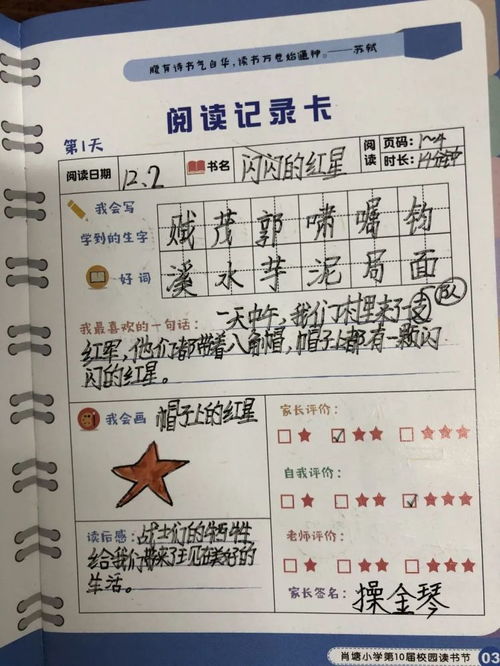 腹有诗书气自华，读书万卷始通神。——苏轼
阅读记录卡
第1天
阅读日期 12.2 书名 闪闪的红星 阅读 页码：1～4
时长：14分钟
我会写
学到的生字 贼 茂 郭 啸 嘱 钧
好词 溪水 芋泥 局面
我最喜欢的一句话： 一天中午，我们村里来了支队
红军，他们都带着八角帽，帽子上都有一颗闪
闪的红星。
我会画 帽子上的红星
家长评价：
自我评价：
老师评价：
读后感：战士们的牺牲
给我们带来了现在美好的
生活。
家长签名：操金琴
肖塘小学第10届校园读书节 03